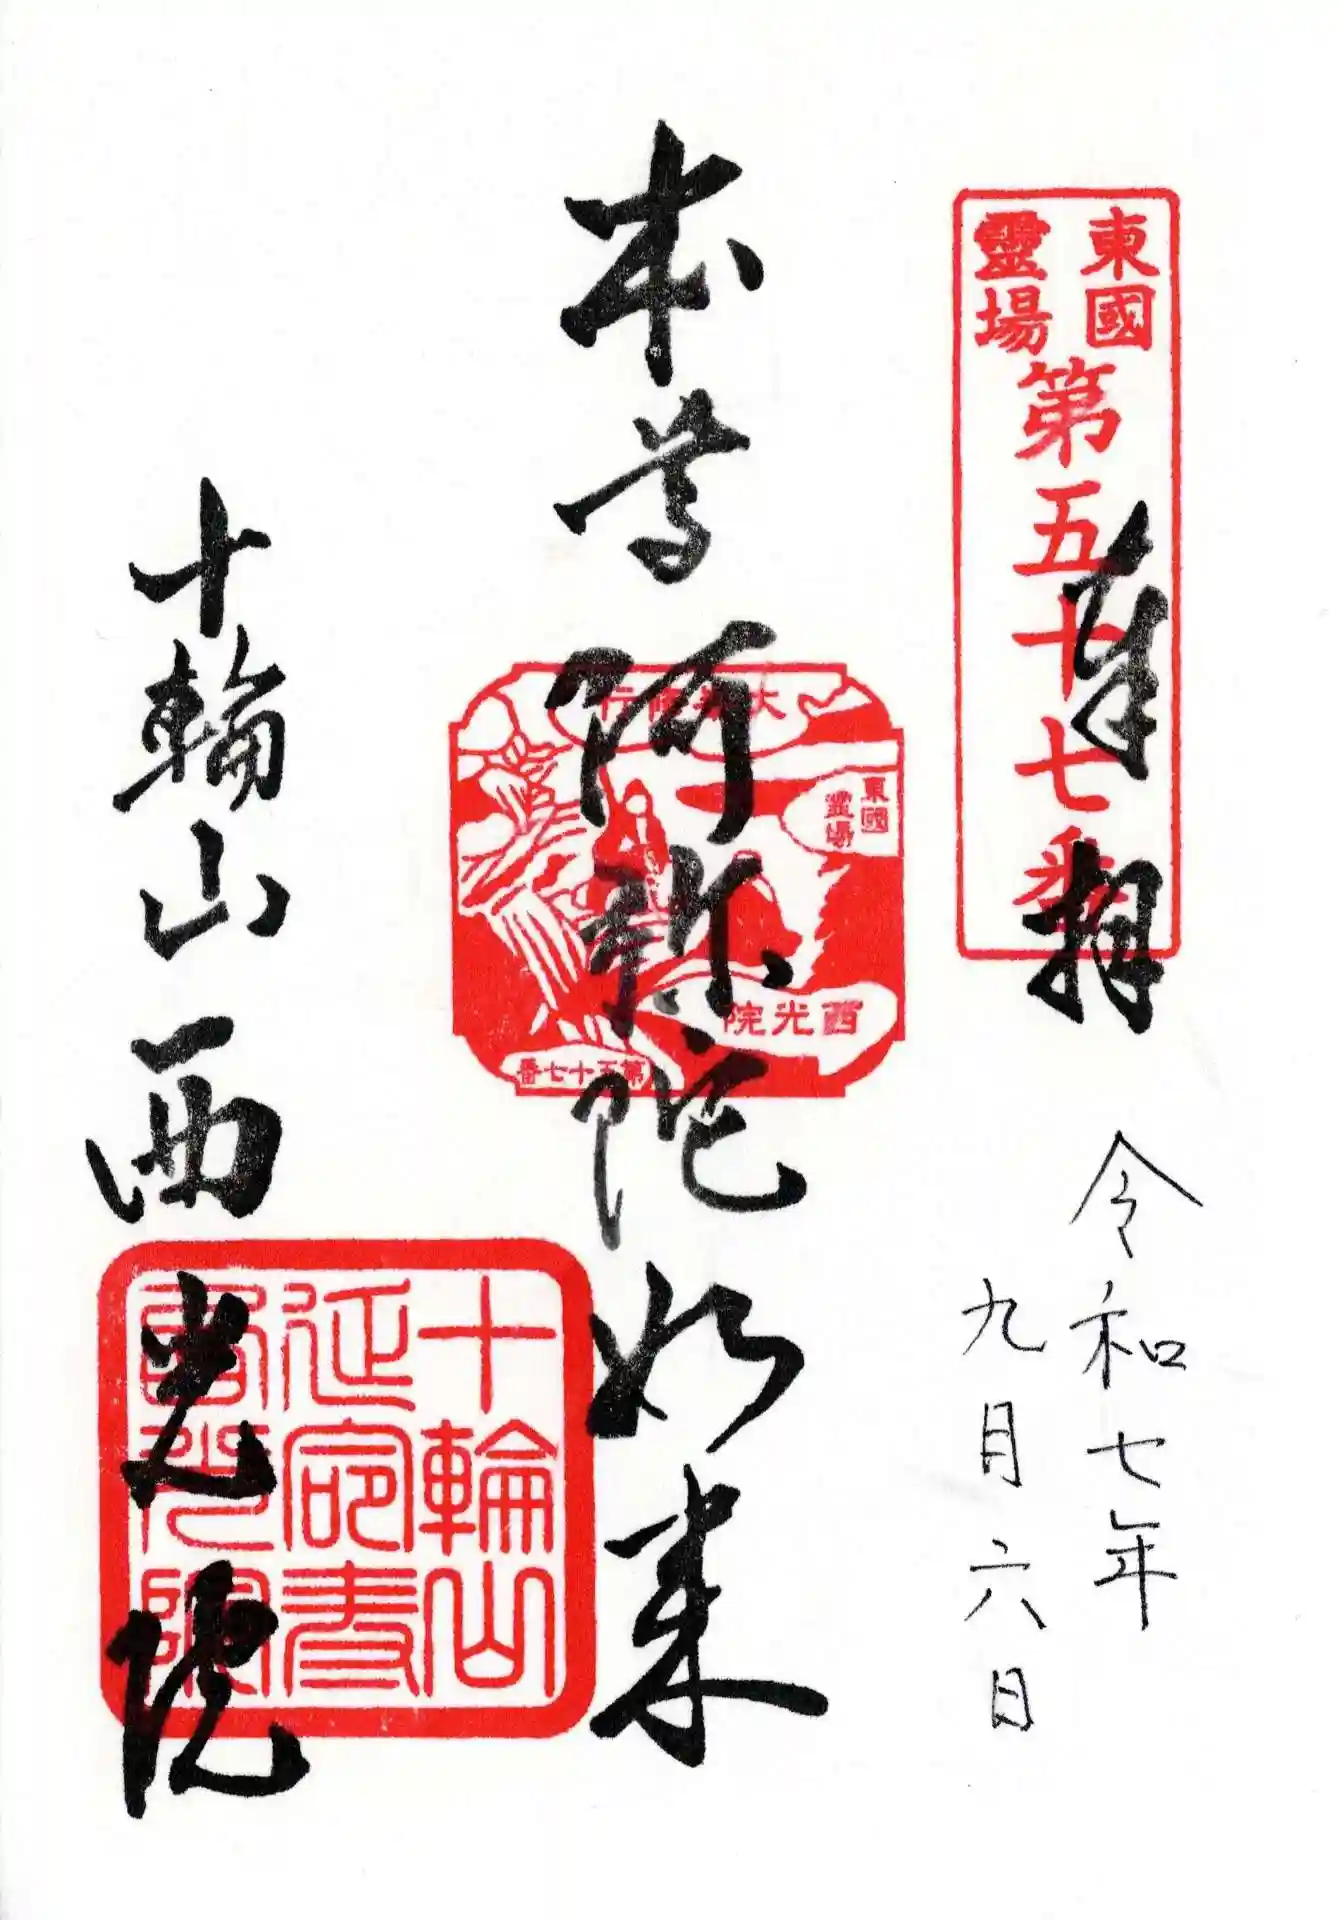 東國
靈場
第五十七番
奉拝
令和七年
九月六日
本尊 阿弥陀如来
東國
靈場
西光院
第五十七番
十輪山 西光院
十輪山
延命寺
西光院